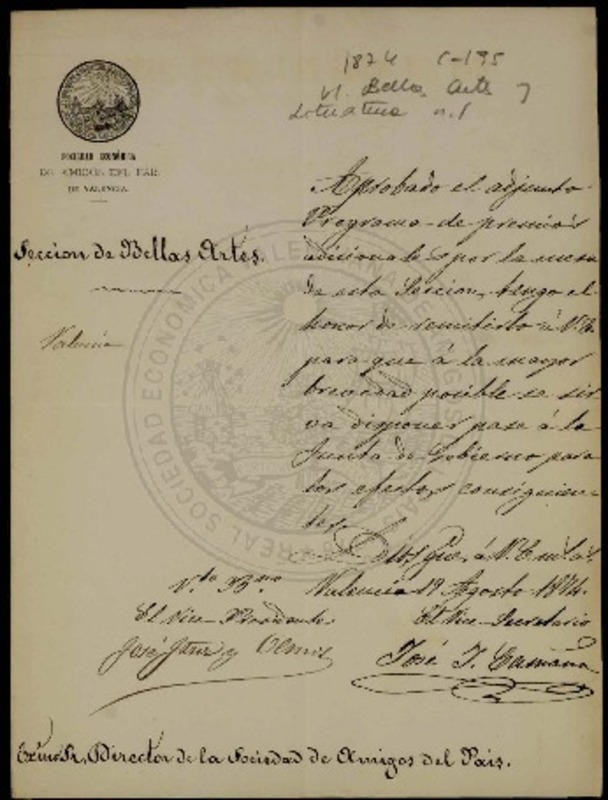 1874 C-195
VI. Bellas Artes y
Literatura n.1
SOCIEDAD ECONÓMICA
DE AMIGOS DEL PAÍS
DE VALENCIA.
Seccion de Bellas Artes.
Valencia
Aprobado el adjunto
Programa de premios
adicionales por la mesa
de esta Seccion, tengo el
honor de remitirlo á V.E.
para que á la mayor
brevedad posible se sir
va disponer pase á la
Junta de Gobierno para
los efectos consiguien
tes.
Dios gue. á V.E. m. a.
Valencia 19 Agosto 1874.
Vto. Bno.
El Vice-Presidente
El Vice-Secretario
José y Olmos
José J. Camaña
Exmo Sr. Director de la Sociedad de Amigos del Pais.